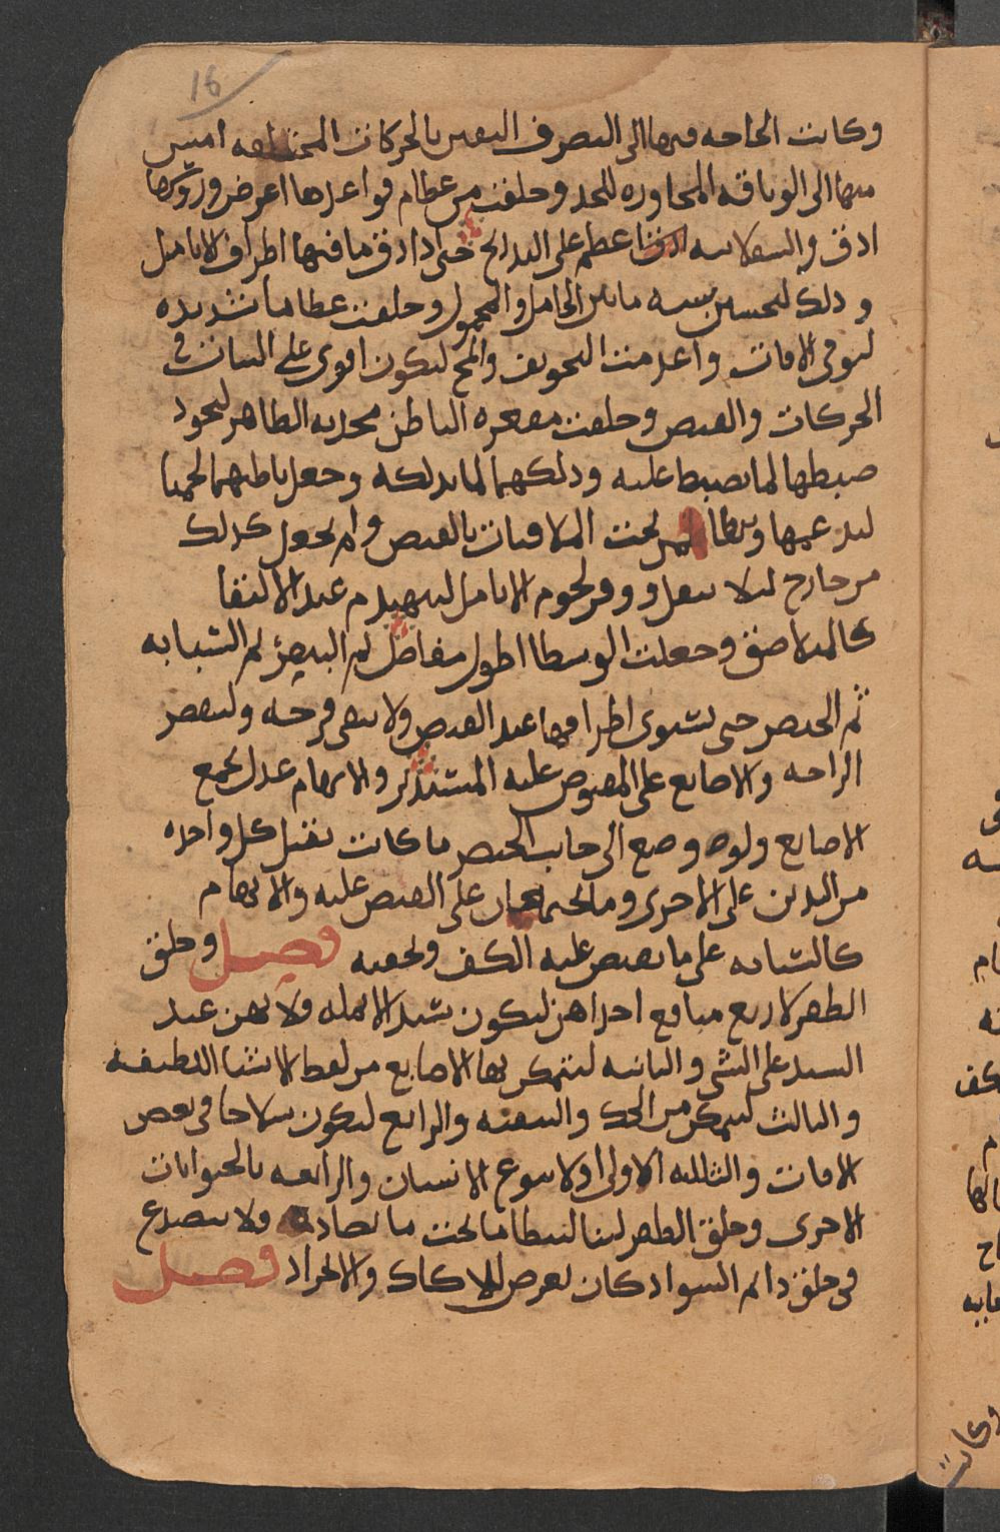 16
وكانت الحاجه فيها الى التصرف المعين بالحركات المختلفه امس
منها الى الوثاقه المجاوره للحد وخلقت من عظام قواعدها اعرض ورؤسها
ادق والسفلانيه عظم على التدريج حتى اذا ادق ما فيها اطراف الانامل
وذلك لتحسين نسبه ما بين الحامل والمحمول وخلقت عظامها شديده
لتوقى الافات واعدمت التجويف والمخ ليكون اقوى على الثبات في
الحركات والقبض وخلقت مقعره الباطن محدبه الظاهر ليجود
ضبطها لما تضبط عليه ودلكها لما تدلكه وجعل باطنها لحميا
ليدعمها وتطامن تحت الملاقيات بالقبض ولم يجعل كذلك
من خارج ليلا يثقل ووفر لحوم الانامل لتتهندم عند الالتقا
كالملاصق وجعلت الوسطا اطول مفاصل ثم البنصر ثم السبابه
ثم الخنصر حتى تستوى اطرافها عند القبض ولا يبقى فرجه وليقعر
الراحه والاصابع على المقبوض عليه المستدير والابهام عدل لجميع
الاصابع ولو وضع الى جانب الخنصر ما كانت تقبل كل واحده
من اليدين على الاخرى وما يجتمعان على القبض عليه والابهام
كالشبابه على ما يقبض عليه الكف وتخفيه فصل وخلق
الظفر لاربع منافع احداهن ليكون سندا للانمله ولا تهن عند
الشد على الشى والثانيه ليتمكن بها الاصابع من لقط الاشيا اللطيفه
والثالث ليتمكن من الحك والتنقيه والرابع ليكون سلاحا في بعض
الاوقات والثلاثه الاولى اولا بنوع الانسان والرابعه بالحيوانات
الاخرى وخلق الظفر لينا ليتطامن تحت ما يصادمه ولا ينصدع
وخلق دايم النشو اذ كان يعرض للانحكاك والانجراد فصل